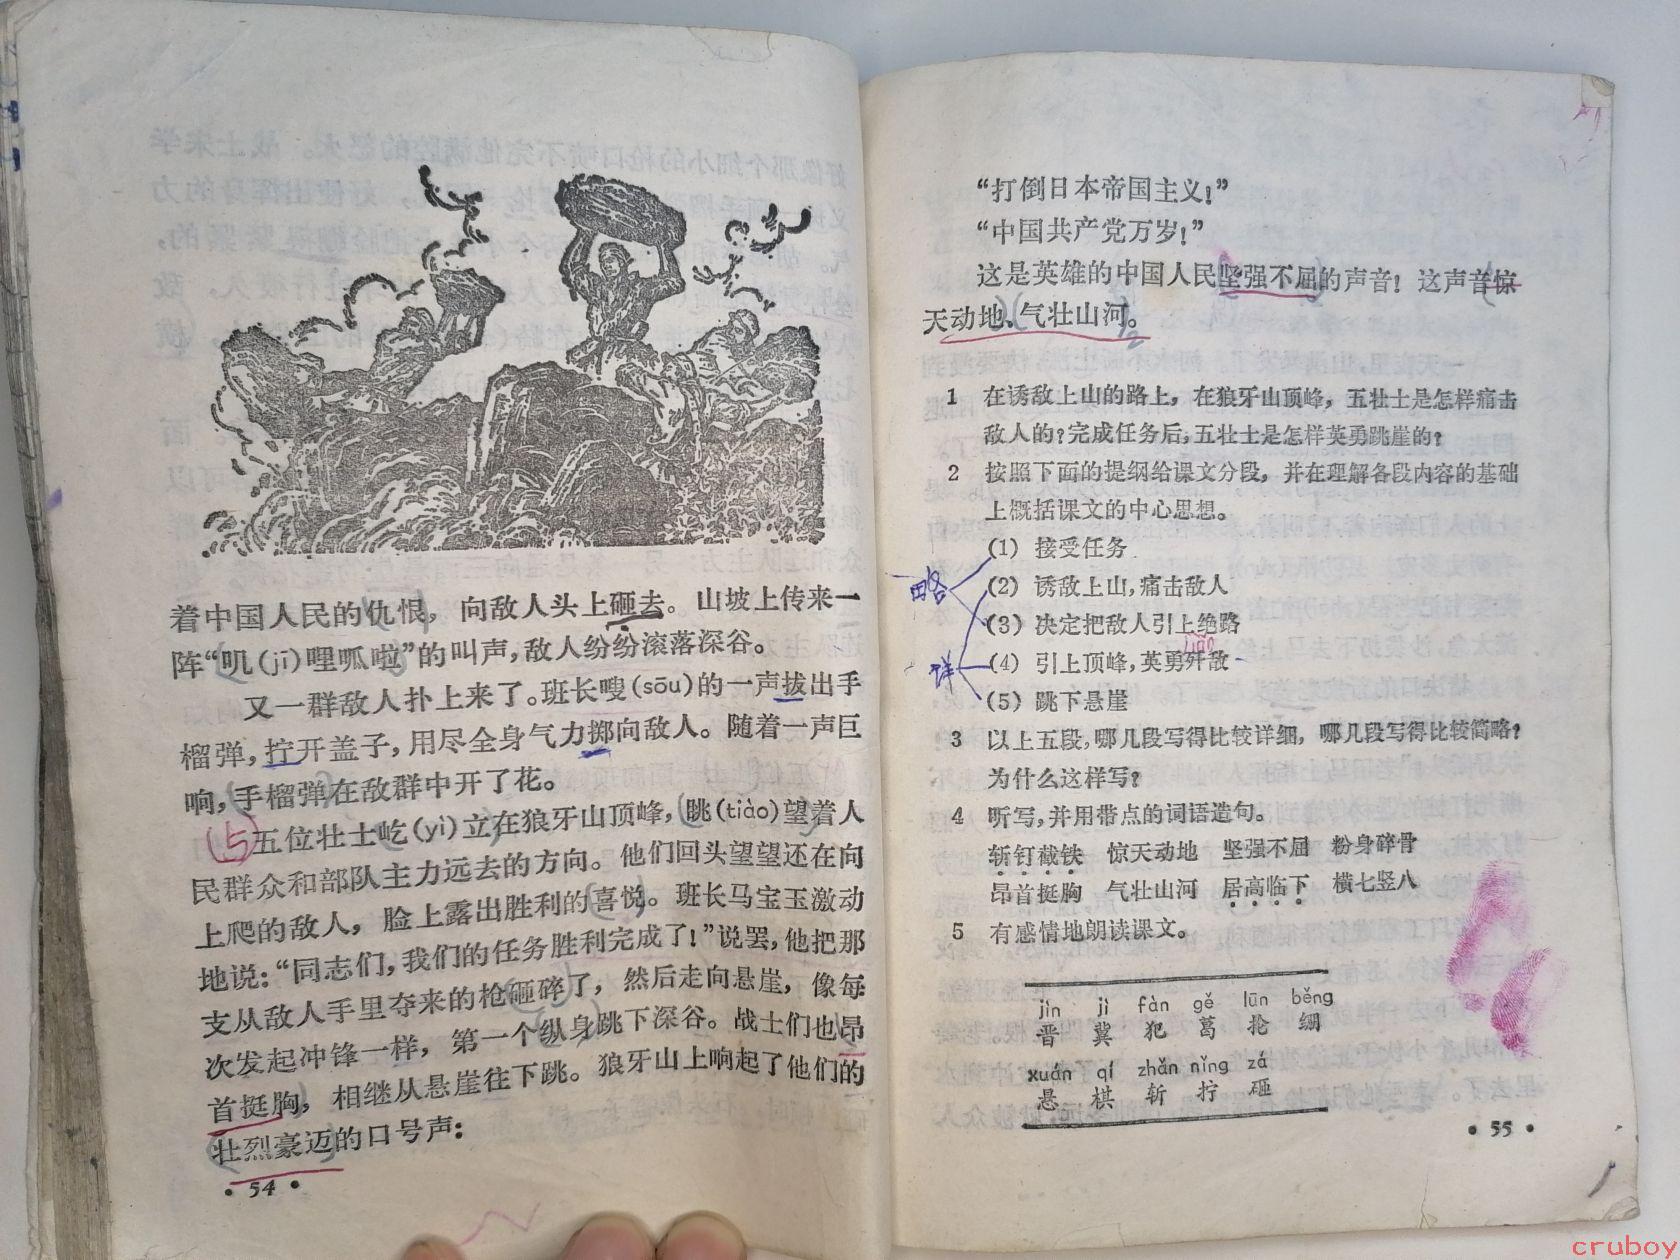 着中国人民的仇恨，向敌人头上砸去。山坡上传来一
阵“叽(jī)哩呱啦”的叫声，敌人纷纷滚落深谷。
又一群敌人扑上来了。班长嗖(sōu)的一声拔出手
榴弹，拧开盖子，用尽全身气力掷向敌人。随着一声巨
响，手榴弹在敌群中开了花。
(5)五位壮士屹(yì)立在狼牙山顶峰，眺(tiào)望着人
民群众和部队主力远去的方向。他们回头望望还在向
上爬的敌人，脸上露出胜利的喜悦。班长马宝玉激动
地说：“同志们，我们的任务胜利完成了！”说罢，他把那
支从敌人手里夺来的枪砸碎了，然后走向悬崖，像每
次发起冲锋一样，第一个纵身跳下深谷。战士们也昂
首挺胸，相继从悬崖往下跳。狼牙山上响起了他们的
壮烈豪迈的口号声：
• 54 •
“打倒日本帝国主义！”
“中国共产党万岁！”
这是英雄的中国人民坚强不屈的声音！这声音惊
天动地、气壮山河。
1 在诱敌上山的路上，在狼牙山顶峰，五壮士是怎样痛击
敌人的？完成任务后，五壮士是怎样英勇跳崖的？
2 按照下面的提纲给课文分段，并在理解各段内容的基础
上概括课文的中心思想。
(1) 接受任务
略 (2) 诱敌上山，痛击敌人
(3) 决定把敌人引上绝路
详 (4) 引上顶峰，英勇歼敌
(5) 跳下悬崖
3 以上五段，哪几段写得比较详细，哪几段写得比较简略？
为什么这样写？
4 听写，并用带点的词语造句。
斩钉截铁 惊天动地 坚强不屈 粉身碎骨
昂首挺胸 气壮山河 居高临下 横七竖八
5 有感情地朗读课文。
jìn jì fàn gě lūn běng
晋 冀 犯 葛 抡 绷
xuán qí zhǎn nǐng zá
悬 棋 斩 拧 砸
• 55 •
cruboy